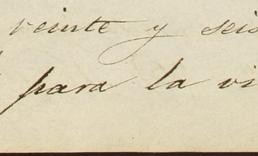 veinte y seis
para la vi